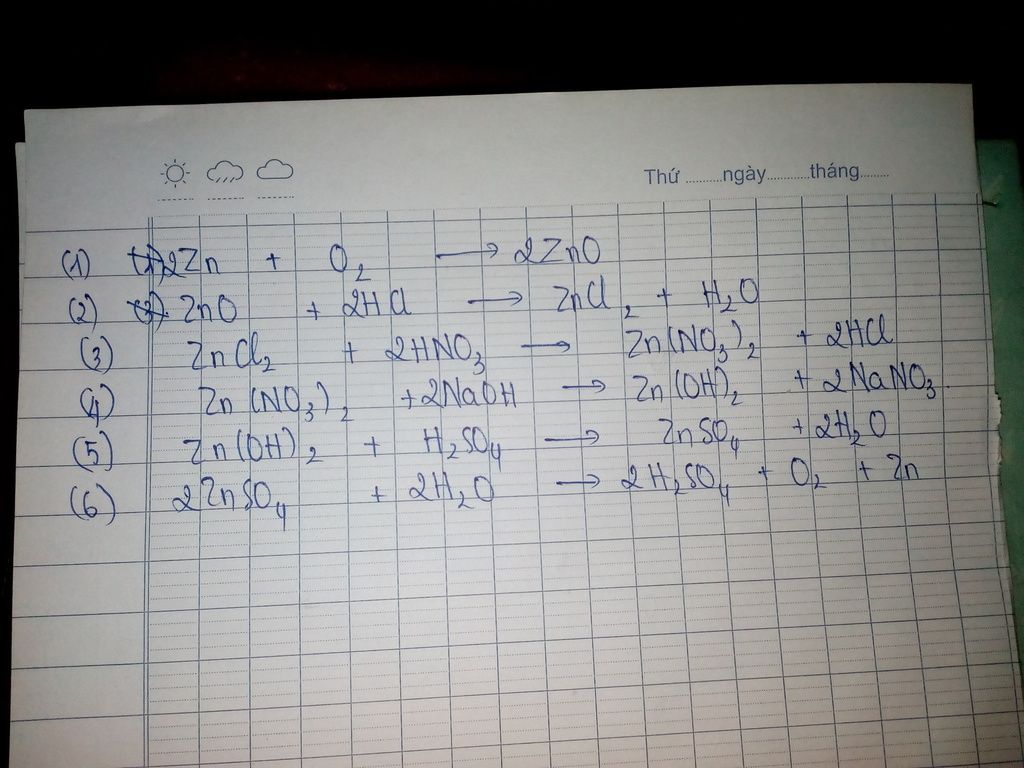 Thứ ..........ngày...........tháng........
(1) 2Zn + O₂ → 2ZnO
(2) ZnO + 2HCl → ZnCl₂ + H₂O
(3) ZnCl₂ + 2HNO₃ → Zn(NO₃)₂ + 2HCl
(4) Zn(NO₃)₂ + 2NaOH → Zn(OH)₂ + 2NaNO₃.
(5) Zn(OH)₂ + H₂SO₄ → ZnSO₄ + 2H₂O
(6) 2ZnSO₄ + 2H₂O → 2H₂SO₄ + O₂ + Zn